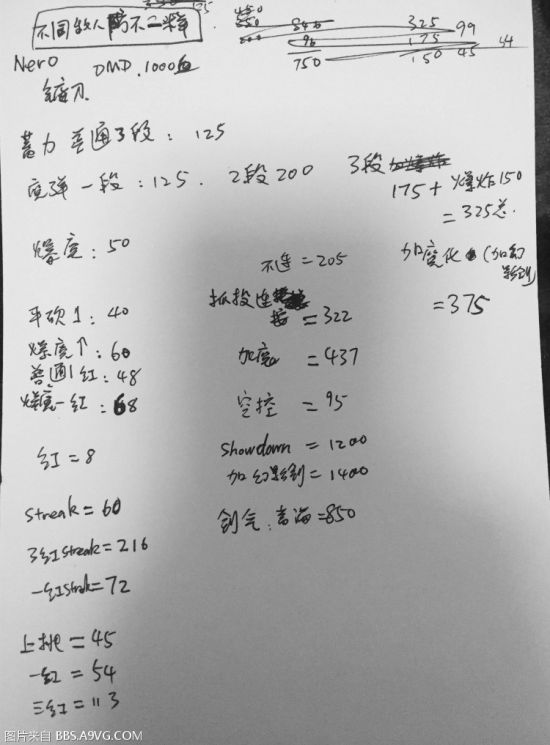 不同敌人防不一样
325 99
175
750 150 45 44
Nero DMD 1000血
蓄力 普通3段：125
魔弹 一段：125. 2段200 3段
175+爆炸150
=325总.
爆魔：50
不连=205
加魔化 (加幻影剑)
=375
抓投连
=322
平砍1：40
爆魔↑：60
普通1红：48
爆魔一红：68
加魔=437
空控=95
红=8
showdown=1200
加幻影剑=1400
Streak=60
剑气：青海=850
3红streak=216
一红streak=72
上挑=45
一红=54
三红=113
图片来自 BBS.A9VG.COM